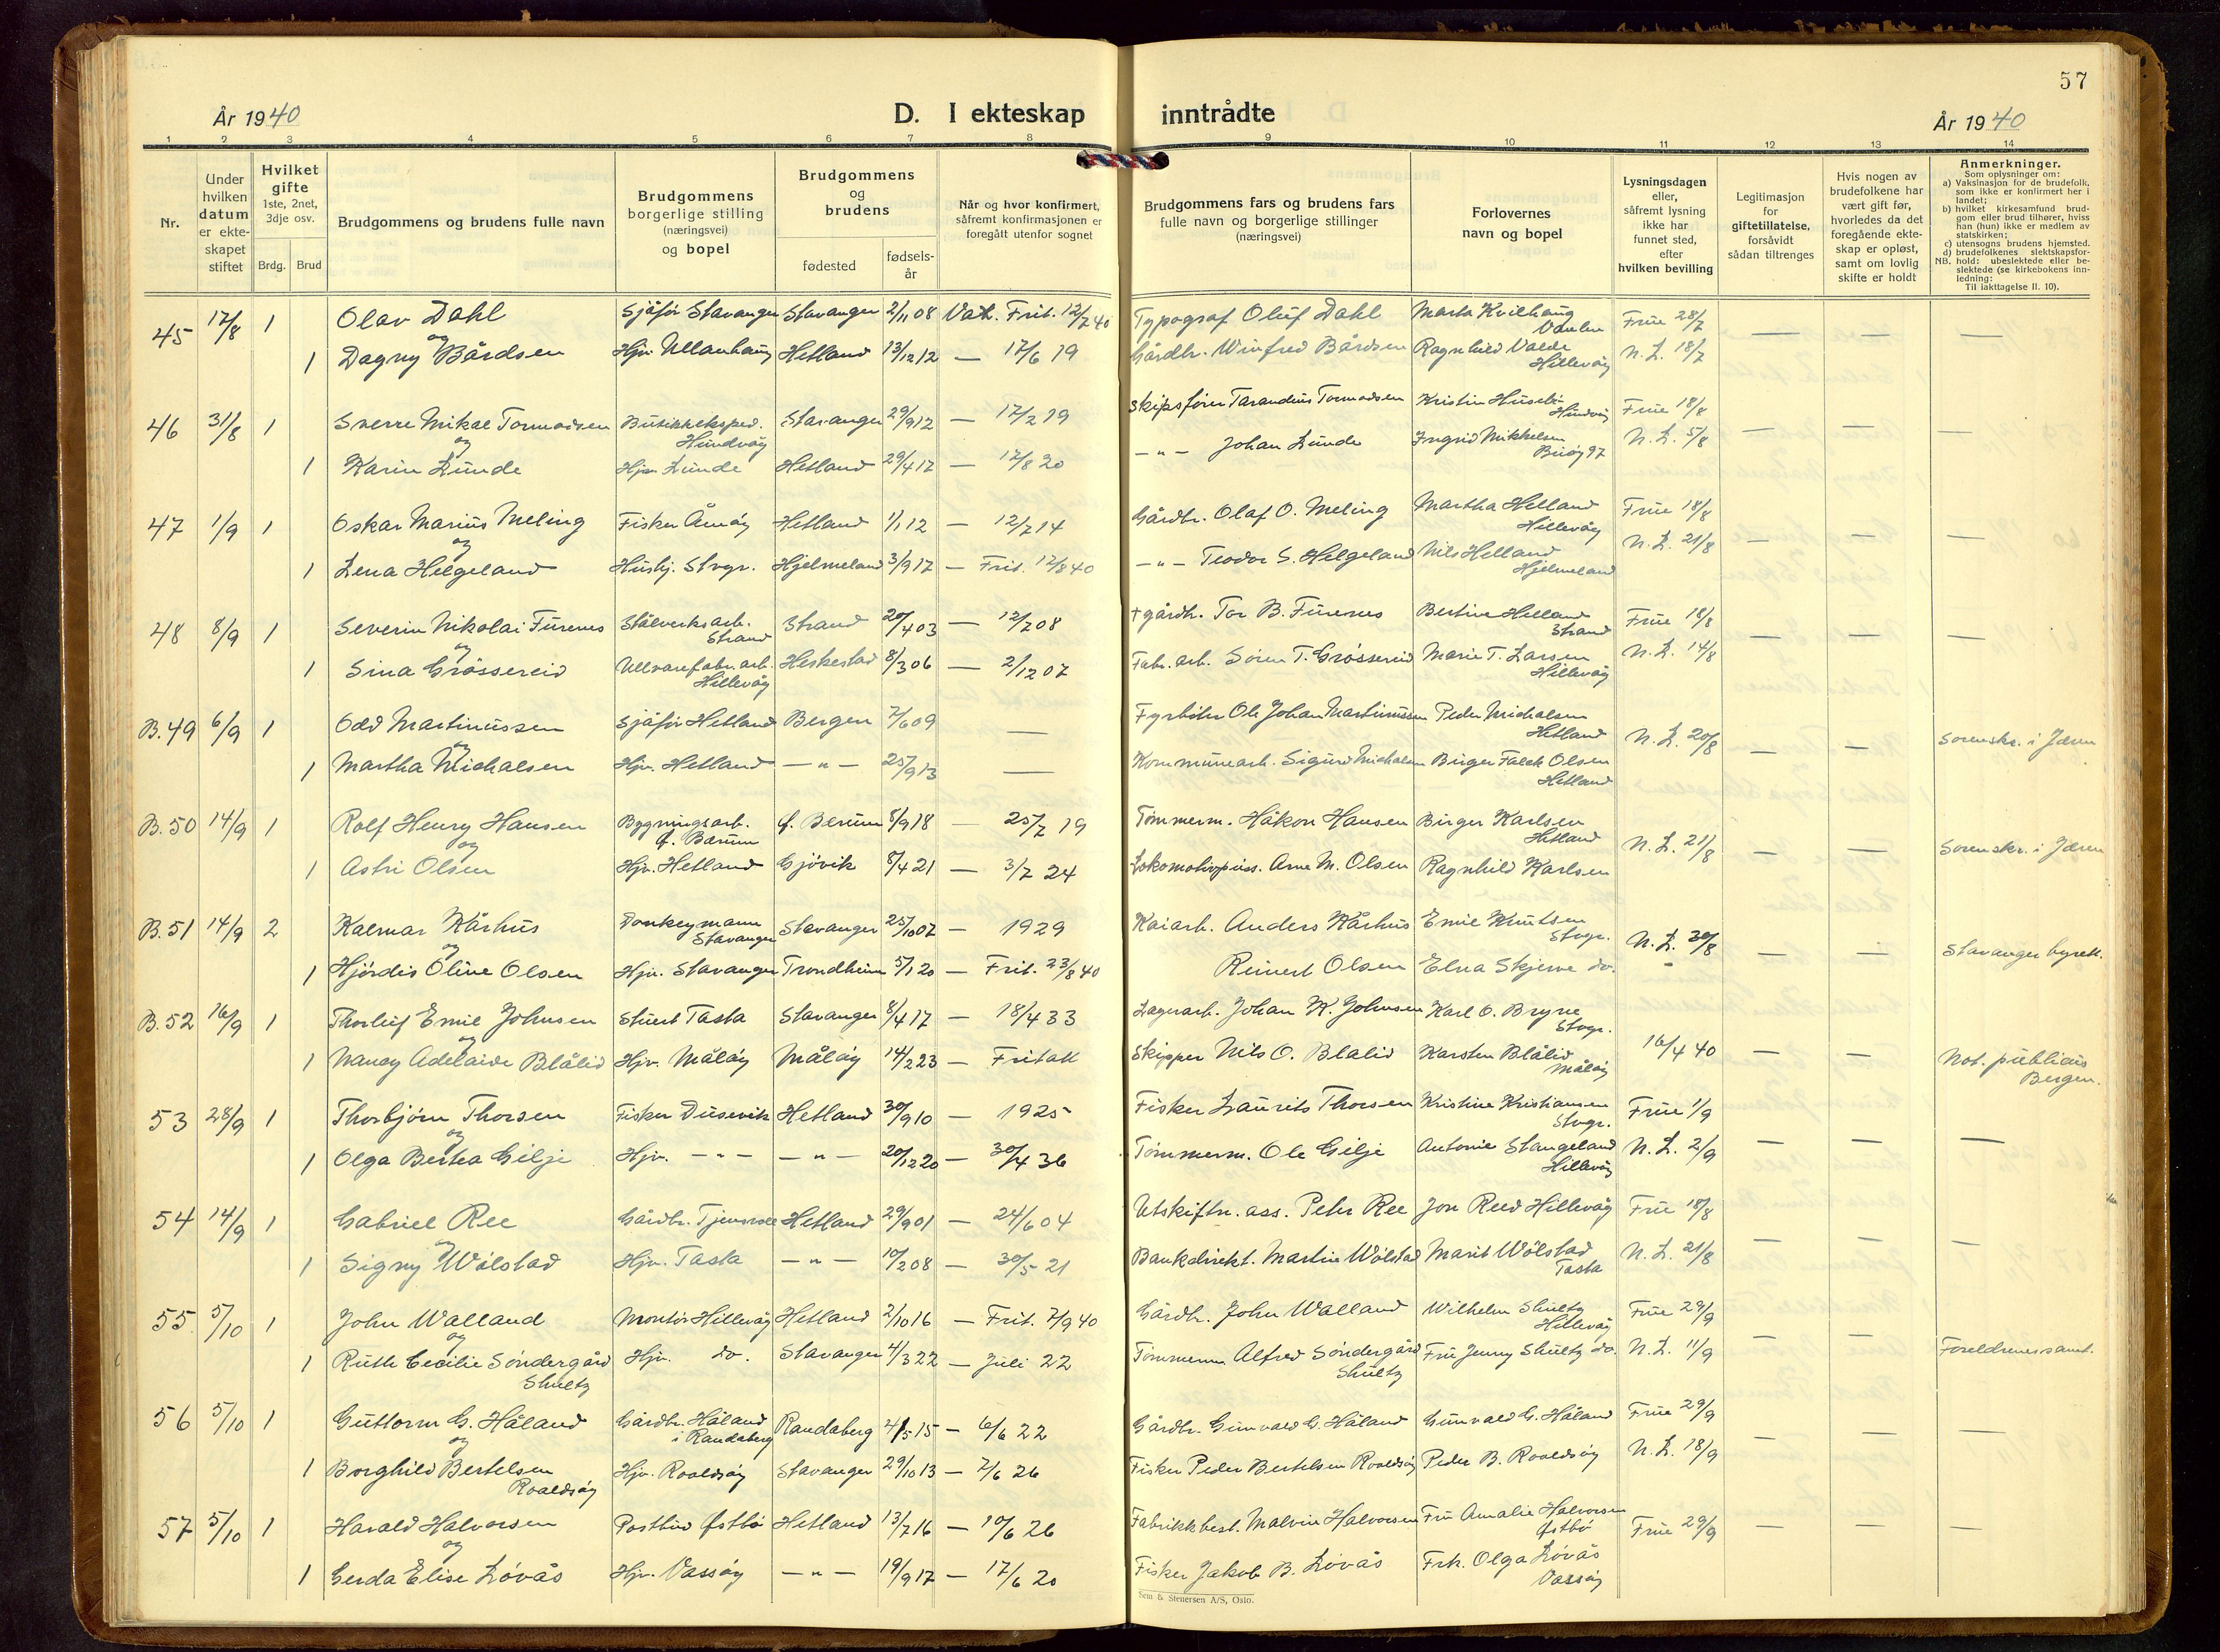 57
År 1940
D. I ekteskap inntrådte
År 1940
1 2 3 4 5 6 7 8 9 10 11 12 13 14
Nr.
Under hvilken datum er ekteskapet stiftet
Hvilket gifte 1ste, 2net, 3dje osv.
Brdg. Brud
Brudgommens og brudens fulle navn
Brudgommens borgerlige stilling (næringsvei) og bopel
Brudgommens og brudens
fødested
fødselsår
Når og hvor konfirmert, såfremt konfirmasjonen er foregått utenfor sognet
Brudgommens fars og brudens fars fulle navn og borgerlige stillinger (næringsvei)
Forlovernes navn og bopel
Lysningsdagen eller, såfremt lysning ikke har funnet sted, efter hvilken bevilling
Legitimasjon for giftetillatelse, forsåvidt sådan tiltrenges
Hvis nogen av brudefolkene har vært gift før, hvorledes da det foregående ekteskap er opløst, samt om lovlig skifte er holdt
Anmerkninger.
Som oplysninger om:
a) Vaksinasjon for de brudefolk, som ikke er konfirmert her i landet;
b) hvilket kirkesamfund brudgom eller brud tilhører, hviss han (hun) ikke er medlem av statskirken;
c) utensogns brudens hjemsted.
d) brudefolkenes slektskapsforhold: ubeslektede eller beslektede (se kirkebokens innledning:
NB.
Til iakttagelse II. 10).
45 17/8 1 Olav Dahl Sjåfør Stavanger Stavanger 2/11 08 Vak. Frit. 12/7 40 Typograf Oluf Dahl Marta Kvilhaug Frue 28/7 — — —
og
1 Dagny Bårdsen Hjv. Ullanhaug Hetland 13/12 12 — 17/6 19 Gårdbr. Winfred Bårdsen Ragnhild Valde Hillevåg N. L. 18/7
46 31/8 1 Sverre Mikal Tormodsen Butikkeksped. Hundvåg Stavanger 29/9 12 — 17/2 19 Skipsfører Tarandius Tormodsen Kristin Husebø Hundvåg Frue 18/8 — — —
og
1 Karin Lunde Hjv. Lunde Hetland 29/4 17 — 17/8 20 — " — Johan Lunde Ingrid Mikkelsen Buøy 97 N. L. 5/8
47 1/9 1 Oskar Marius Meling Fisker Åmøy Hetland 1/1 12 — 12/7 14 Gårdbr. Olaf O. Meling Martha Helland Hillevåg Frue 18/8 — — —
og
1 Lena Helgeland Hushj. Stvgr. Hjelmeland 3/9 17 — Frit. 12/8 40 — " — Teodor S. Helgeland Nils Helland Hjelmeland N. L. 21/8
48 8/9 1 Severin Nikolai Furenes Stålverksarb. Strand Strand 20/4 03 — 12/7 08 + gårdb. Tor B. Furenes Bertine Helland Strand Frue 18/8 — — —
og
1 Sina Grøssereid Ullvarefabr. arb. Hillevåg Heskestad 8/3 06 — 2/12 07 Fabr. arb. Søren T. Grøssereid Marie T. Larsen Hillevåg N. L. 14/8
B. 49 6/9 1 Odd Martinussen Sjåfør Hetland Bergen 7/6 09 — Fyrbøter Ole Johan Martinussen Peder Michalsen Hetland N. L. 20/8 — — Sorenskr. i Jæren
og
1 Martha Michalsen Hjv. Hetland — " — 25/9 13 — Kommunearb. Sigurd Michalsen Birger Falck Olsen Hetland
B. 50 14/9 1 Rolf Henry Hansen Bygningsarb. Ø. Bærum Ø. Berum 8/9 18 — 25/7 19 Tømmerm. Håkon Hansen Birger Karlsen Hetland N. L. 21/8 — — Sorenskr. i Jæren
og
1 Astri Olsen Hjv. Hetland Gjøvik 8/4 21 — 3/7 24 Lokomotivpuss. Arne M. Olsen Ragnhild Karlsen
B. 51 14/9 2 Kalmar Kårhus Donkeymann Stavanger Stavanger 25/10 07 — 1929 Kaiarb. Anders Kårhus Emil Knutsen Stvgr. N. L. 30/8 — — Stavanger byrett.
og
1 Hjørdis Oline Olsen Hjv. Stavanger Trondheim 5/1 20 — Frit. 23/8 40 Reinert Olsen Elna Skjerve do.
B. 52 16/9 1 Thorleif Emil Johnsen Stuert Tasta Stavanger 8/4 17 — 18/4 33 Lagerarb. Johan K. Johnsen Karl O. Bryne Stvgr. 16/4 40 — — Not. publicus Bergen.
og
1 Nancy Adelaide Blålid Hjv. Måløy Måløy 14/2 23 — Fritatt Skipper Nils O. Blålid Karsten Blålid Måløy
53 28/9 1 Thorbjørn Thorsen Fisker Dusevik Hetland 30/9 10 — 1925 Fisker Laurits Thorsen Kristine Kristiansen Stvgr. Frue 1/9 — — —
og
1 Olga Berta Gilje Hjv. — " — — " — 20/12 20 — 30/4 36 Tømmerm. Ole Gilje Antonie Stangeland Hillevåg N. L. 2/9
54 14/9 1 Gabriel Ree Gårdbr. Hetland 29/9 01 — 24/6 04 Utskiftn. ass. Peter Ree Jon Reed Hillevåg Frue 18/8 — — —
og
1 Signy Wølstad Hjv. Tasta — " — 10/2 08 — 30/5 21 Bankdirekt. Martin Wølstad Marit Wølstad Tasta N. L. 21/8
55 5/10 1 John Walland Montør Hillevåg Hetland 2/10 16 — Frit. 7/9 40 Gårdbr. John Walland Wilhelm Shultz Hillevåg Frue 29/9 — — Foreldrenes samt.
og
1 Ruth Cecilie Søndergård Shultz Hjv. do. Stavanger 4/3 22 — Juli 22 Tømmerm. Alfred Søndergård Shultz Fru Jenny Shultz do. N. L. 11/9
56 5/10 1 Guttorm G. Håland Gårdbr. Håland i Randaberg Randaberg 4/5 15 — 6/6 22 Gårdbr. Gunvald G. Håland Gunvald G. Håland Frue 29/9 — — —
og
1 Borghild Bertelsen Roaldsøy Hjv. Roaldsøy Stavanger 29/10 13 — 7/6 26 Fisker Peder Bertelsen Roaldsøy Peder B. Roaldsøy N. L. 18/9
57 5/10 1 Harald Halvorsen Postbud Østbø Hetland 13/7 16 — 10/6 26 Fabrikkbest. Malvin Halvorsen Fru Amalie Halvorsen Østbø Frue 29/9 — — —
og
1 Gerda Elise Løvås Hjv. Vassøy — " — 19/9 17 — 17/6 20 Fisker Jakob B. Løvås Frk. Olga Løvås Vassøy
Sem & Stenersen A/S, Oslo.